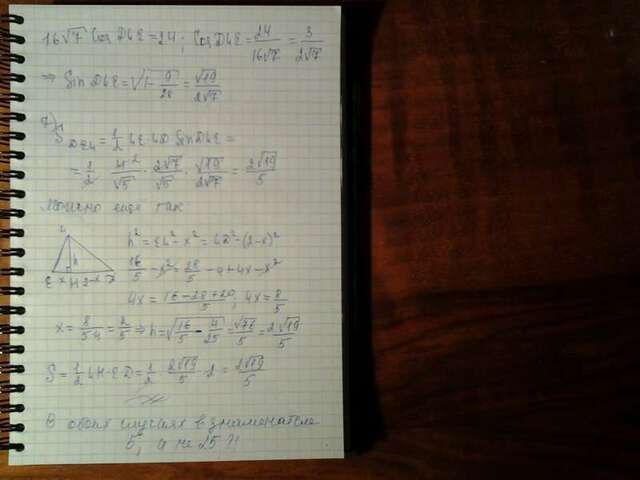 16√7 Cos DLE = 24; Cos DLE = 24/(16√7) = 3/(2√7)
⇒ Sin DLE = √(1 - 9/28) = √19/(2√7)
S DEL = 1/2 LE·LD Sin DLE =
= 1/2 · 4/√5 · 2√7/√5 · √19/(2√7) = 2√19/5
Можно еще так
L
h² = EL² - x² = LD² - (2-x)²
h
E x H 2-x D
16/5 - x² = 28/5 - 4 + 4x - x²
4x = (16 - 28 + 20)/5; 4x = 8/5
x = 8/(5·4) = 2/5 ⇒ h = √(16/5 - 4/25) = √76/5 = 2√19/5
S = 1/2 LH·ED = 1/2 · 2√19/5 · 2 = 2√19/5
В обоих случаях в знаменателе
5, а не 25 !!